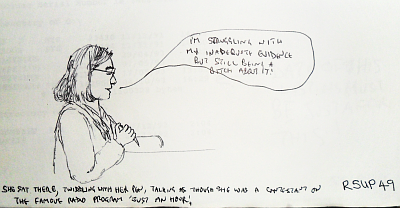 I'M STRUGGLING WITH
MY INADEQUATE GUIDANCE
BUT STILL BEING A
BITCH ABOUT IT!
SHE SAT THERE, TWIDDLING WITH HER PEN, TALKING AS THOUGH SHE WAS A CONTESTANT ON
THE FAMOUS RADIO PROGRAM 'JUST AN HOUR'
RSUP49